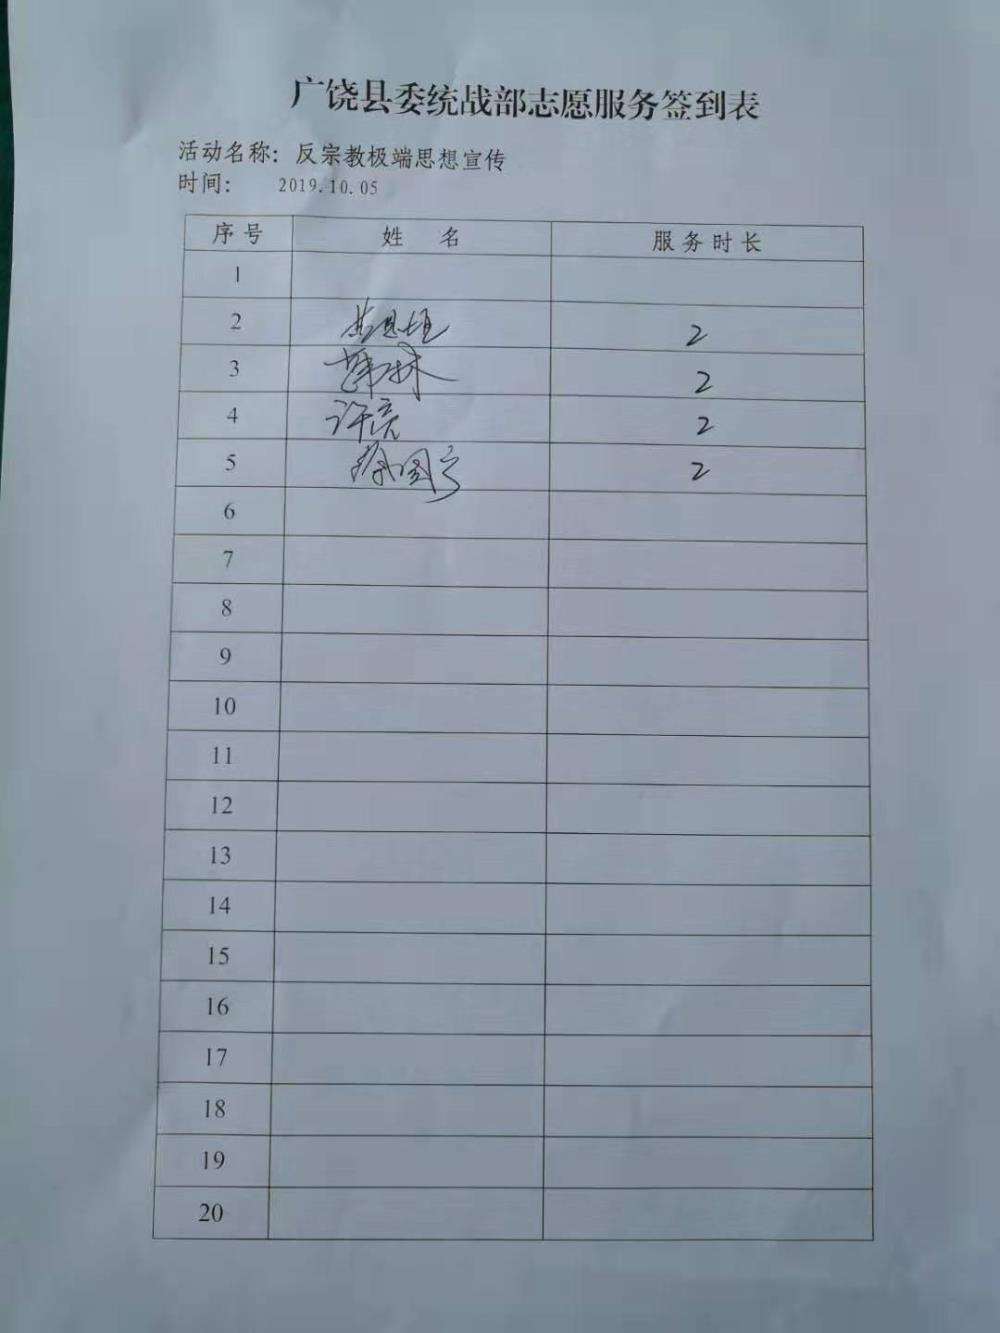 广饶县委统战部志愿服务签到表
活动名称：反宗教极端思想宣传
时间： 2019.10.05
序号 姓 名 服务时长
1
2 2
3 2
4 许亮 2
5 2
6
7
8
9
10
11
12
13
14
15
16
17
18
19
20